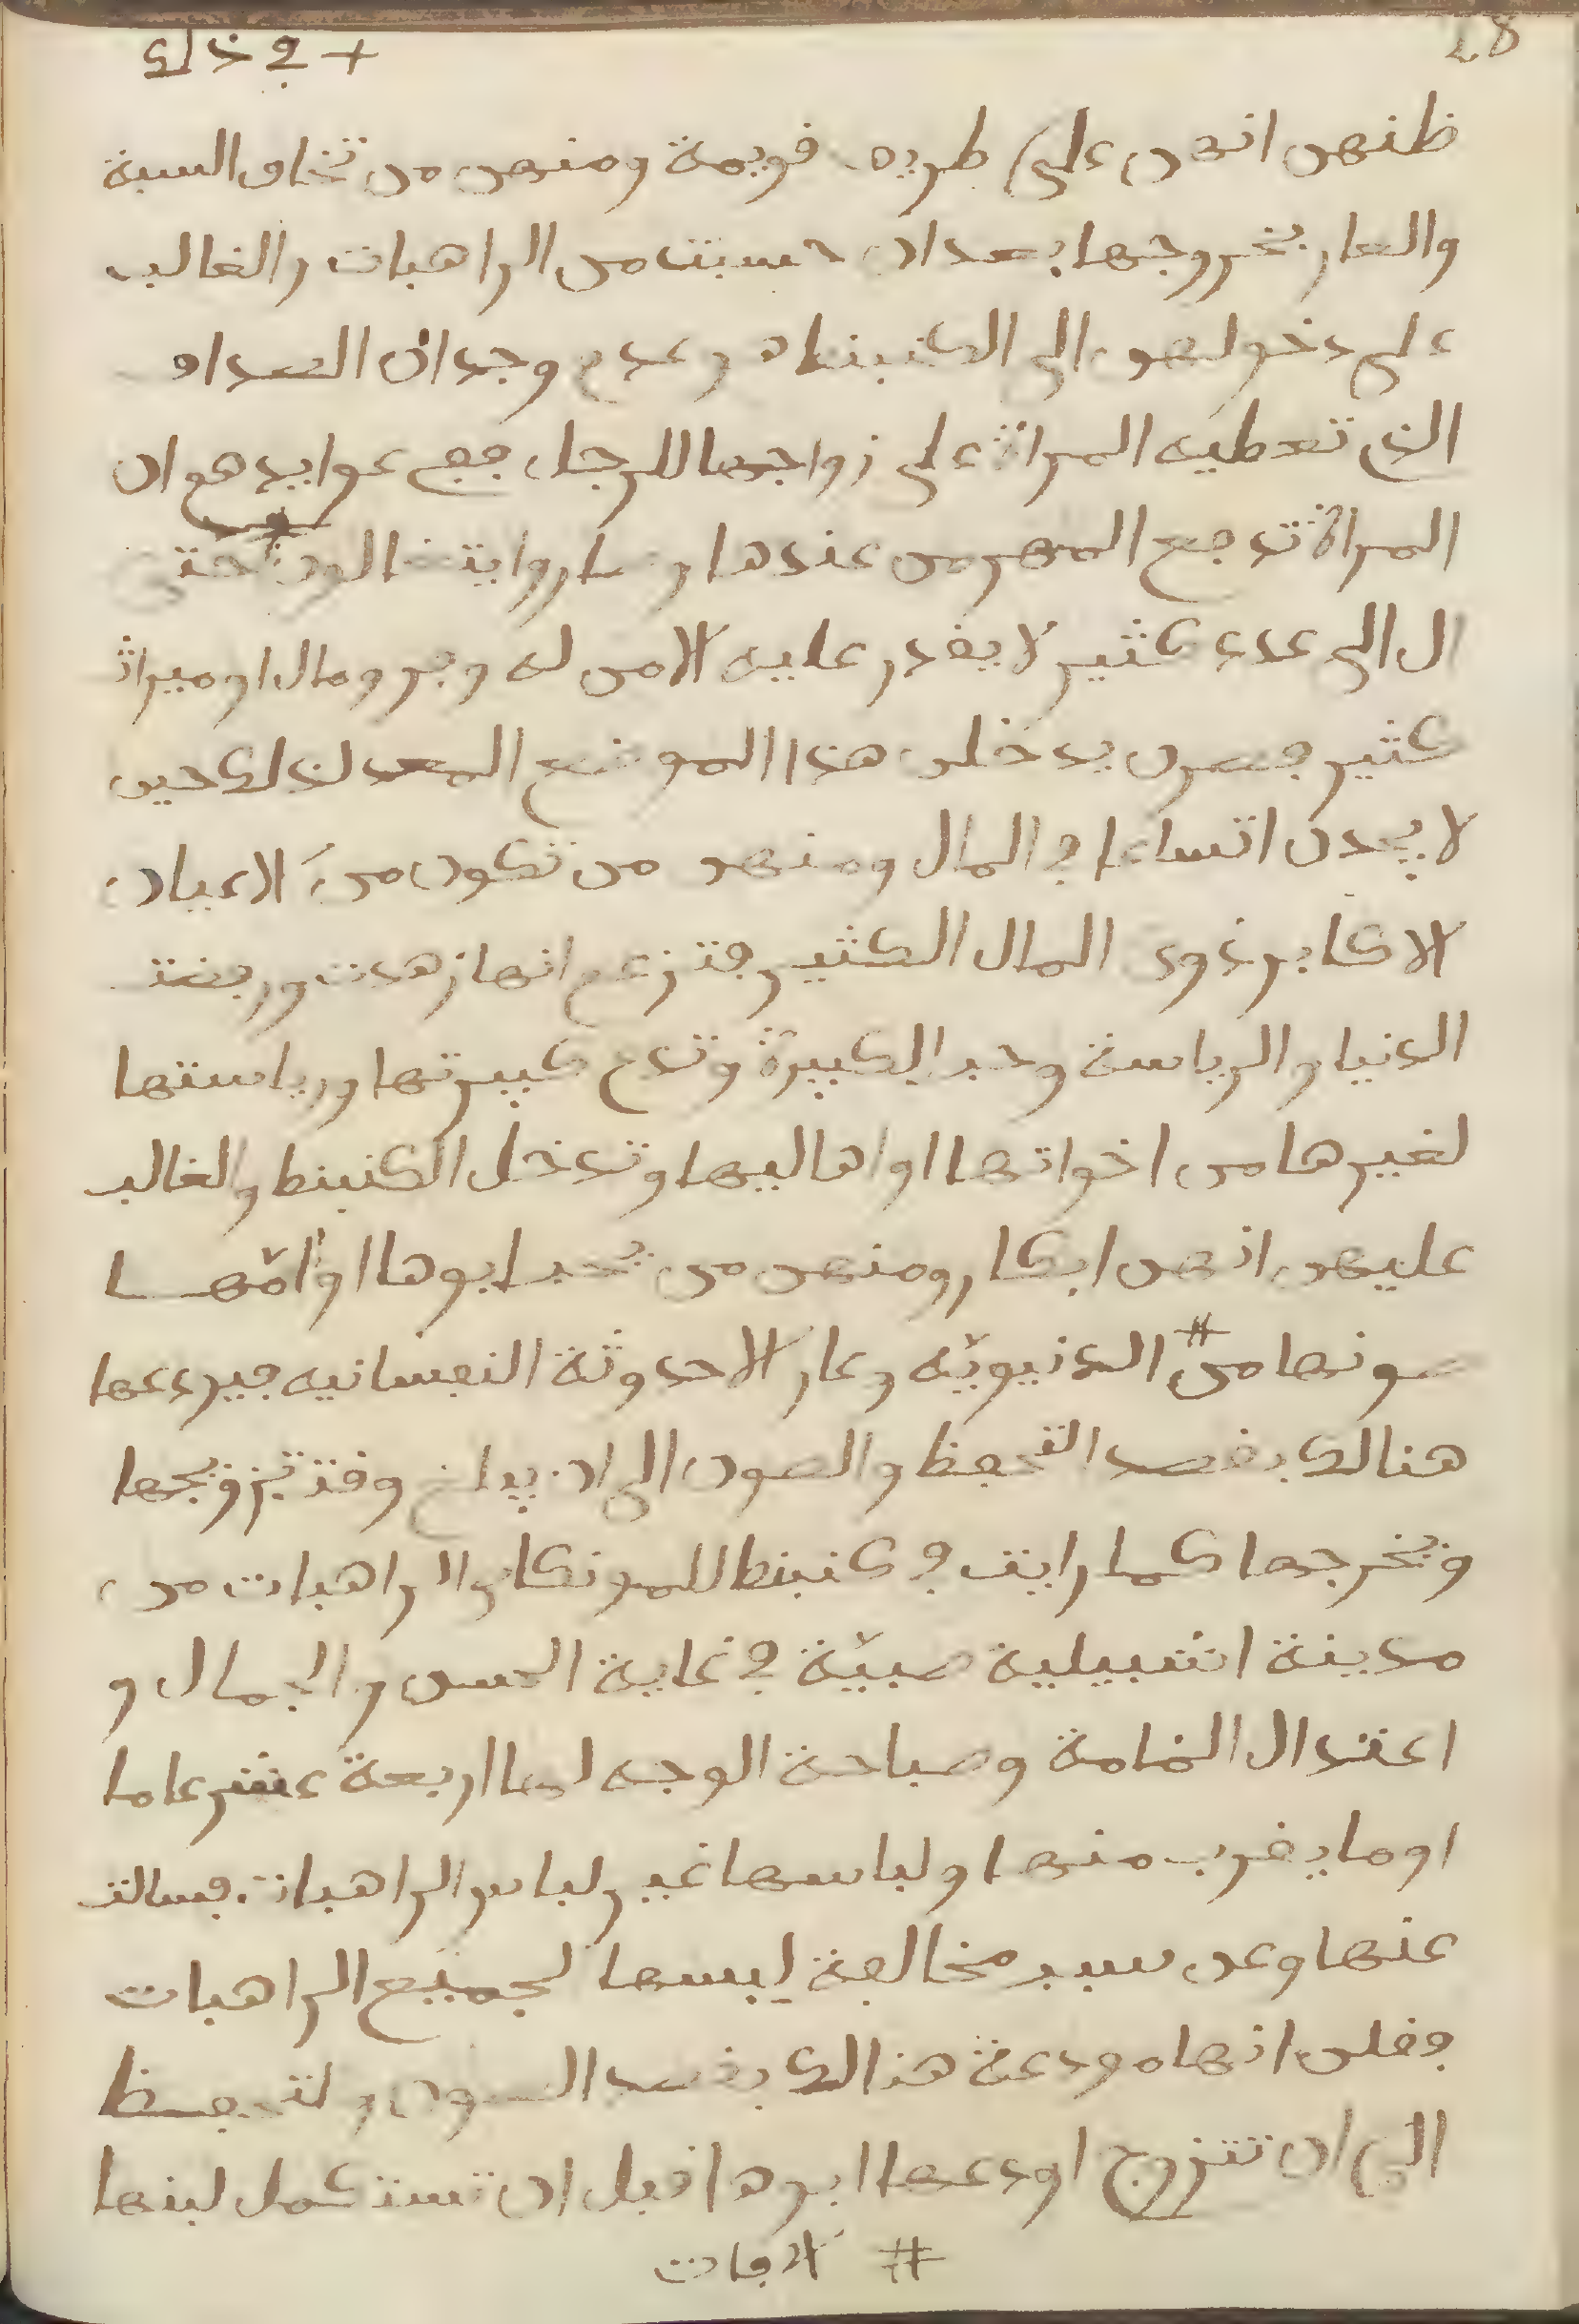 48
+ في ذلك
ظنهن انهن على طريق قويمة ومنهن من تخاف السبة
والعار بخروجها بعد ان حسبت من الراهبات والغالب
على دخولهن الى الكنبنط هو عدم وجدان الصداق
الذي تعطيه المراة على زواجها للرجل ففي عوايدهم ان
المراة تدفع المهر من عندها و حتى
ال الى عدد كثير لا يقدر عليه الا من له وفر ومال او ميراث
كثير فهن يدخلن هذا الموضع المعد لذلك حين
لا يجدن اتساعا في المال ومنهن من تكون من الاعيان
الاكابر ذوي المال الكثير فتزعم انها زهدت ورفضت
الدنيا والرياسة وحب الكبيرة وتدع كبيرتها ورياستها
لغيرها من اخواتها او اهاليها وتدخل الكنبنط والغالب
عليهن انهن ابكار ومنهن من يحب ابوها او امها
صونها من # الدنيويّه وعار الاحدوثة النفسانيه فيدعها
هنالك بقصد التحفظ والصون الى ان يبلغ وقت تزويجها
ويخرجها كما رايت في كنبنط للمونكاس الراهبات من
مدينة اشبيلية صبيّة في غاية الحسن والجمال و
اعتدال القامة وصباحة الوجه لها اربعة عشر عاما
او ما يقرب منها ولباسها غير لباس الراهبات فسالت
عنها وعن سبب مخالفة لبسها لجميع الراهبات
فقلن انها مودعة هنالك بقصد الصون والتحفظ
الى ان تتزوج اودعها ابوها قبل ان تستكمل لبنها
# الافات